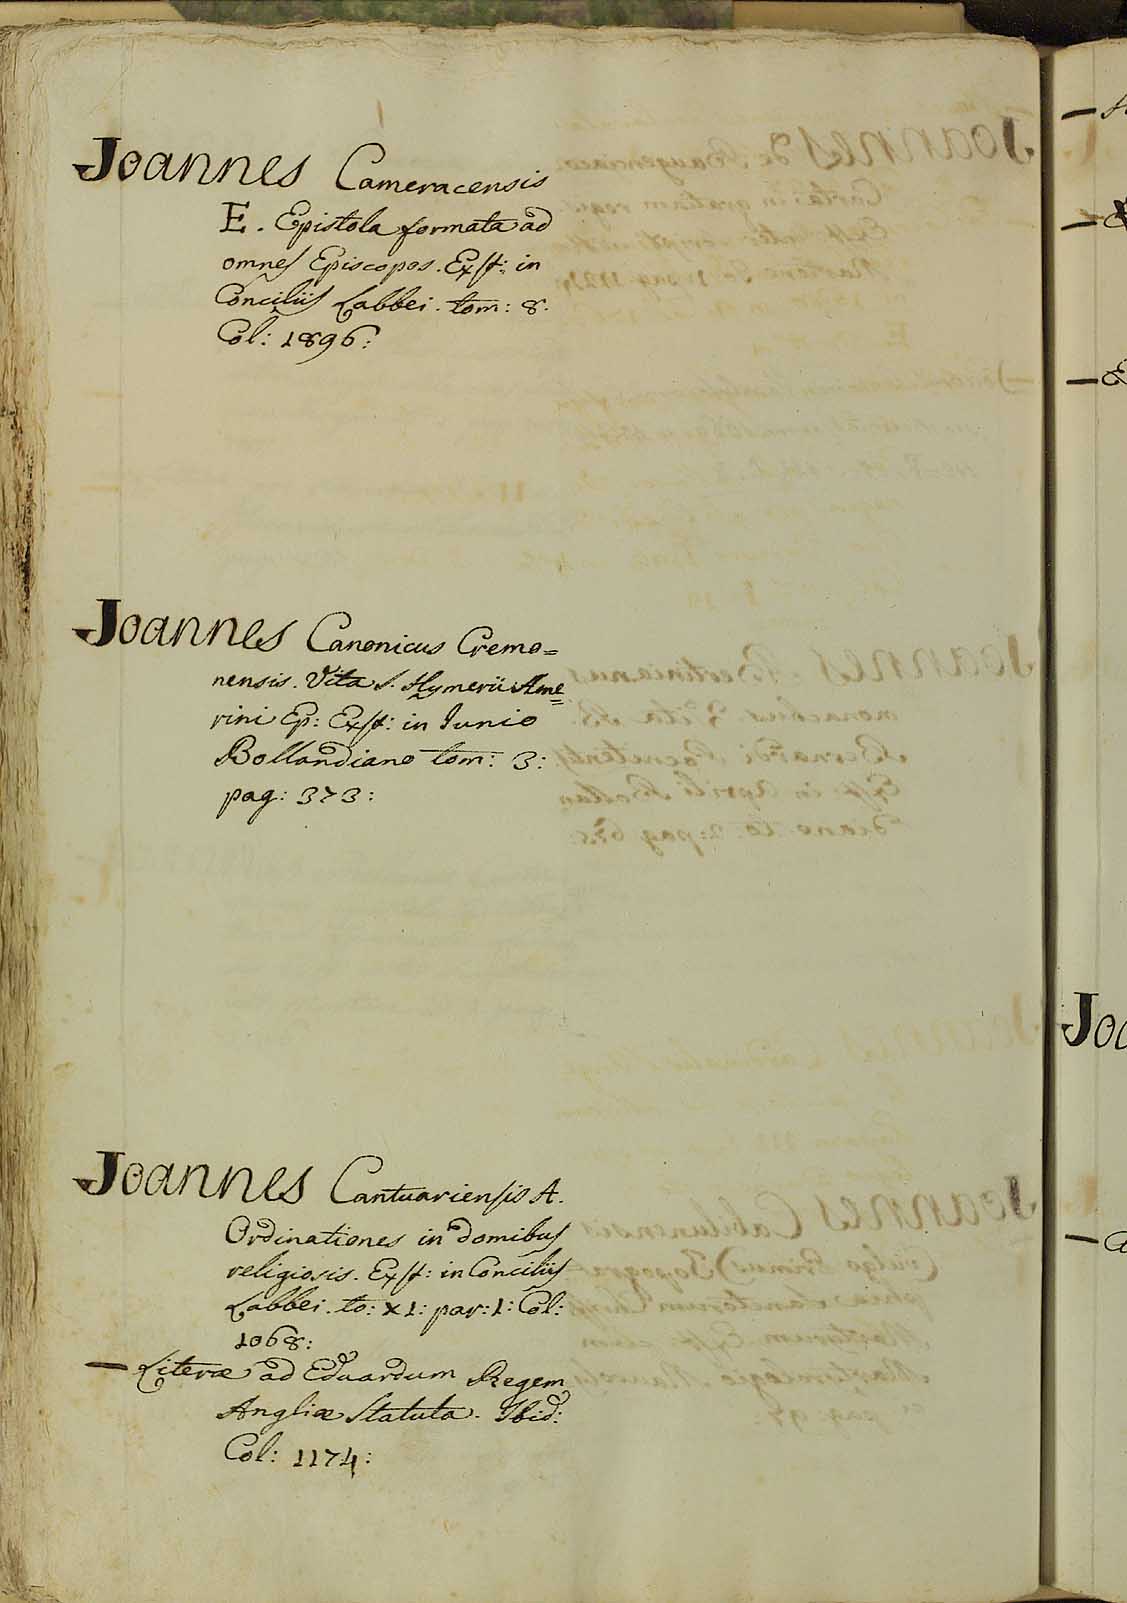 Joannes Cameracensis
E. Epistola formata ad
omnes Episcopos. Exst: in
Conciliis Labbei. tom: 8.
Col: 1896:
Joannes Canonicus Cremo=
nensis. Vita S. Hymerii Ame=
rini Ep: Exst: in Junio
Bollandiano tom: 3:
pag: 373:
Joannes Cantuariensis A.
Ordinationes in domibus
religiosis. Exst: in Conciliis
Labbei. to: XI: par: 1: Col:
1068:
— Literæ ad Eduardum Regem
Angliæ Statuta. Ibid:
Col: 1174: